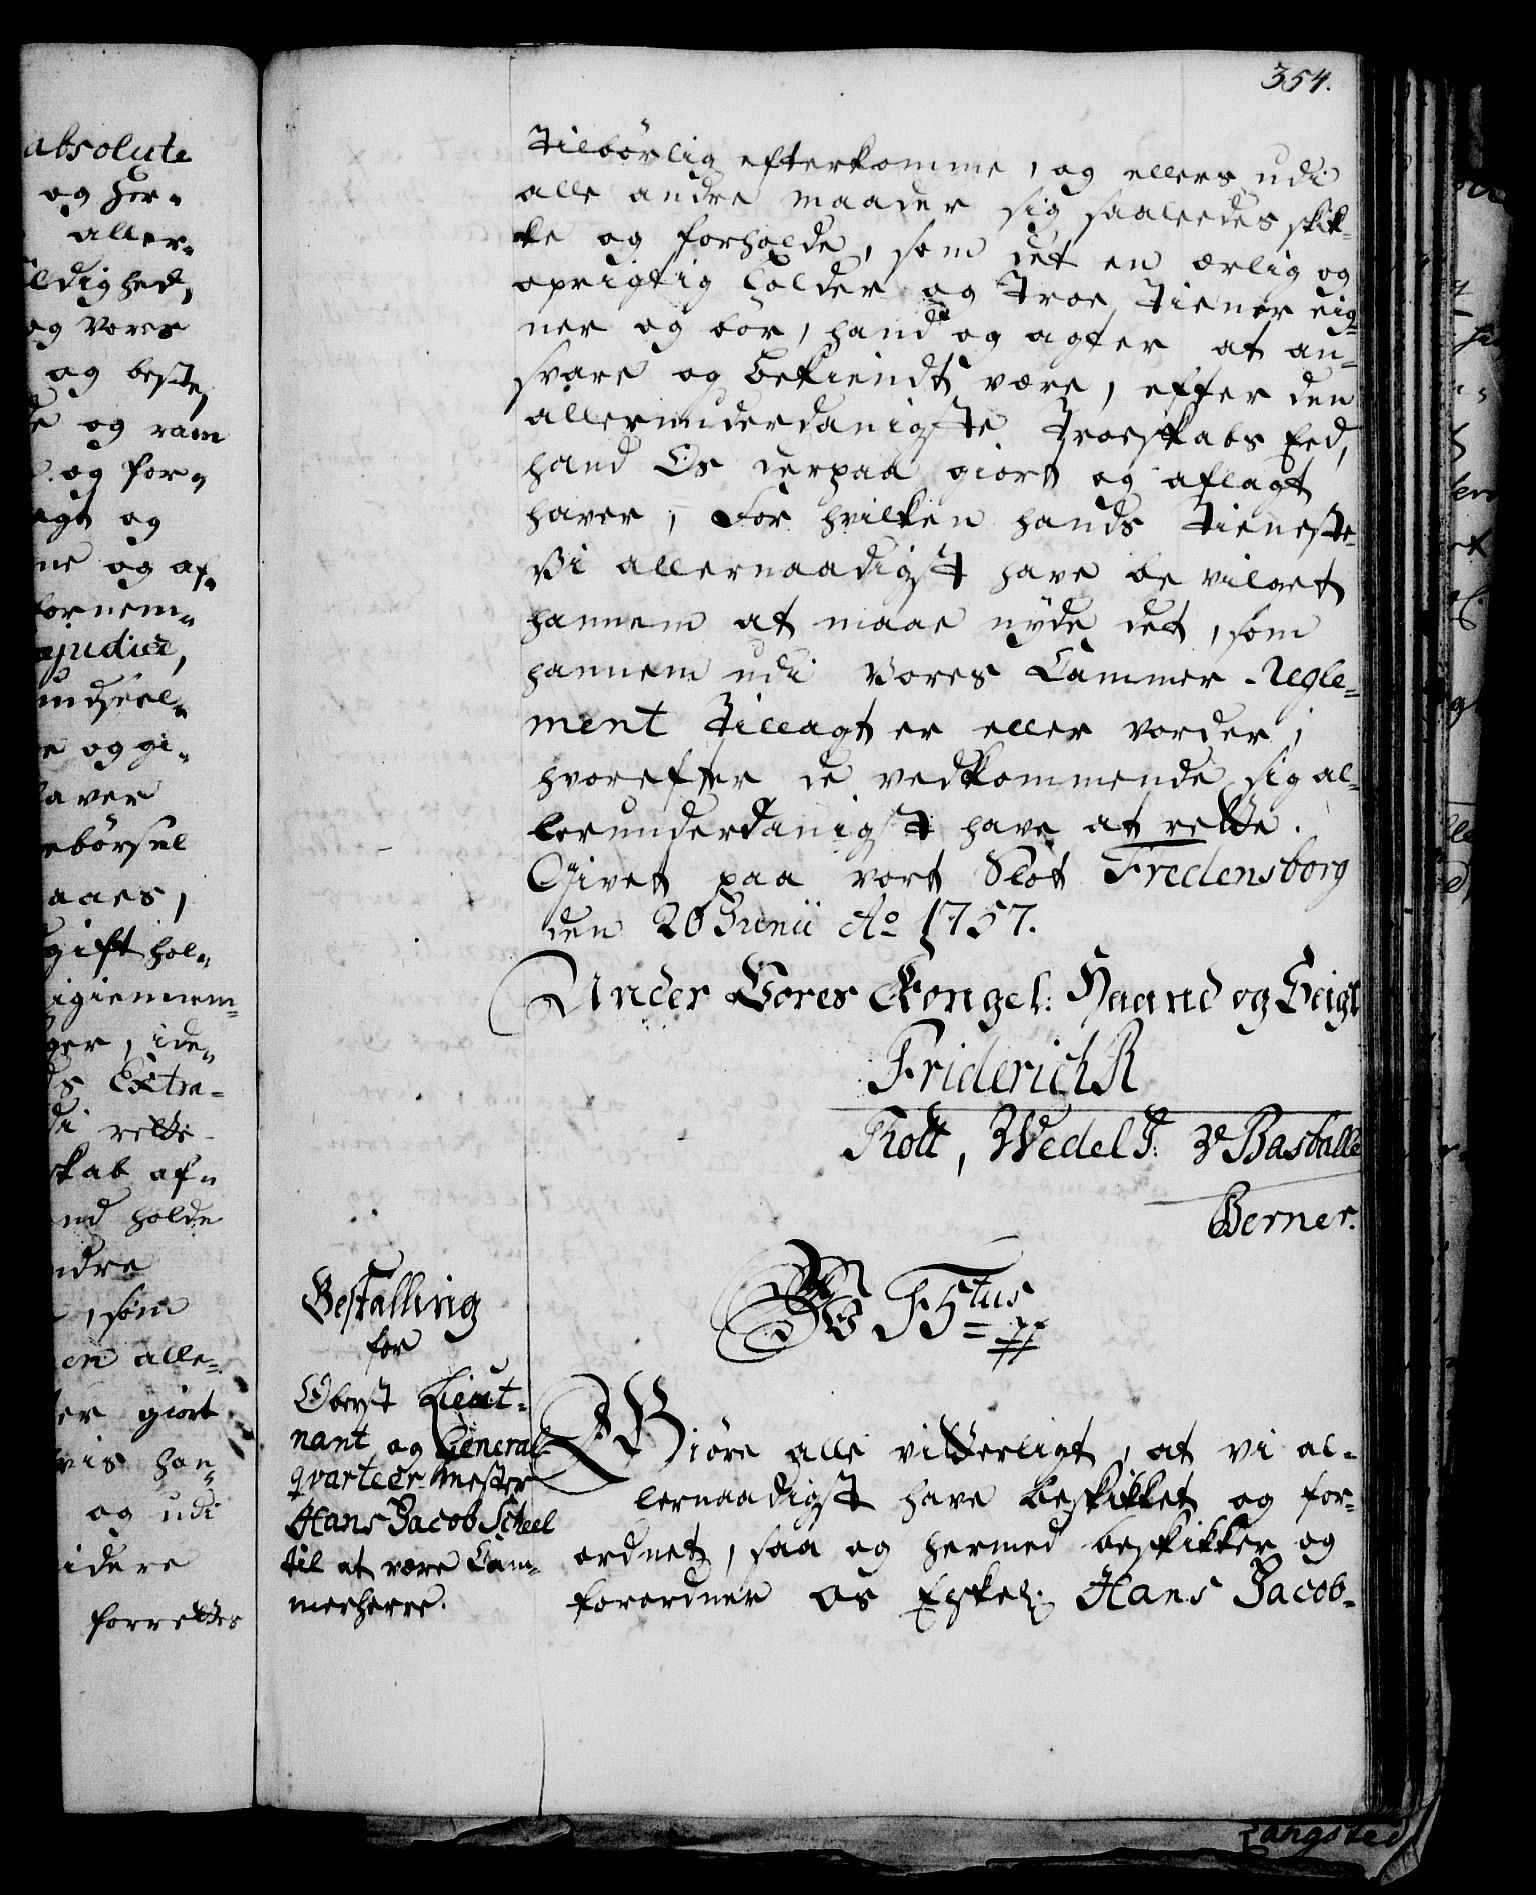 absolute
og her-
aller-
ldighed,
og Vores
og beste,
e og ram
og for-
agt og
ne og af-
fornem-
ejudice,
indseel-
e og gi-
haver
ebörsel
aaes,
gift hol-
igiennem-
ger, ide-
s Extra-
di rette
skab af-
nd holde
ndre
, som
en alle-
er giort
vis han-
og udi
idere
forrettes
354.
Tilbörlig efterkomme, og ellers udi
alle andre maader sig saaledes skik-
ke og forholde, som det en ærlig og
oprigtig Colder og Troe Tiener eig-
ner og bör, hand og agter at an-
svare og bekiendt være, efter den
allerunderdanigste Troeskabs Eed,
hand Os derpaa giort og aflagt
haver, For hvilken hands Tieneste
Vi allernaadigst have bevilget
hannem at maae nÿde det, som
hannem udi Vores Cammer-Regle-
ment Tillagt er eller vorder,
hvorefter de vedkommende sig al-
lerunderdanigst have at rette.
Givet paa vort Slot Fredensborg
den 20 Junii Ao 1757.
Under Vores Kongel: Haand og Seigl
Friderich R
Holt, Wedel F: v Basballe
Berner.
Bestalling
for
Oberst Lieut-
nant og General
qvarteer-mester
Hans Jacob Scheel
til at være Cam-
merherre.
F 5tus
Giöre alle vitterligt, at vi al-
lernaadigst have beskikket og for-
ordnet, saa og hermed beskikker og
forordner Os Elskel: Hans Jacob-
Langsted